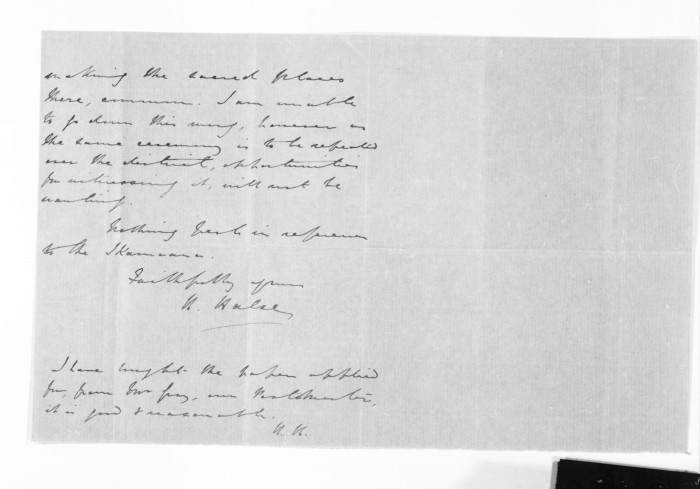 making the sacred places
there, common. I am unable
to go down this way, however as
the same ceremony is to be repeated
over the district, opportunities
for witnessing it, will not be
wanting.
Nothing fresh in reference
to the Ikamoana.
Faithfully yours
H. Halse
I have bought the paper applied
for, from Mr Guy, our Postmaster,
it is good & reasonable.
H. H.